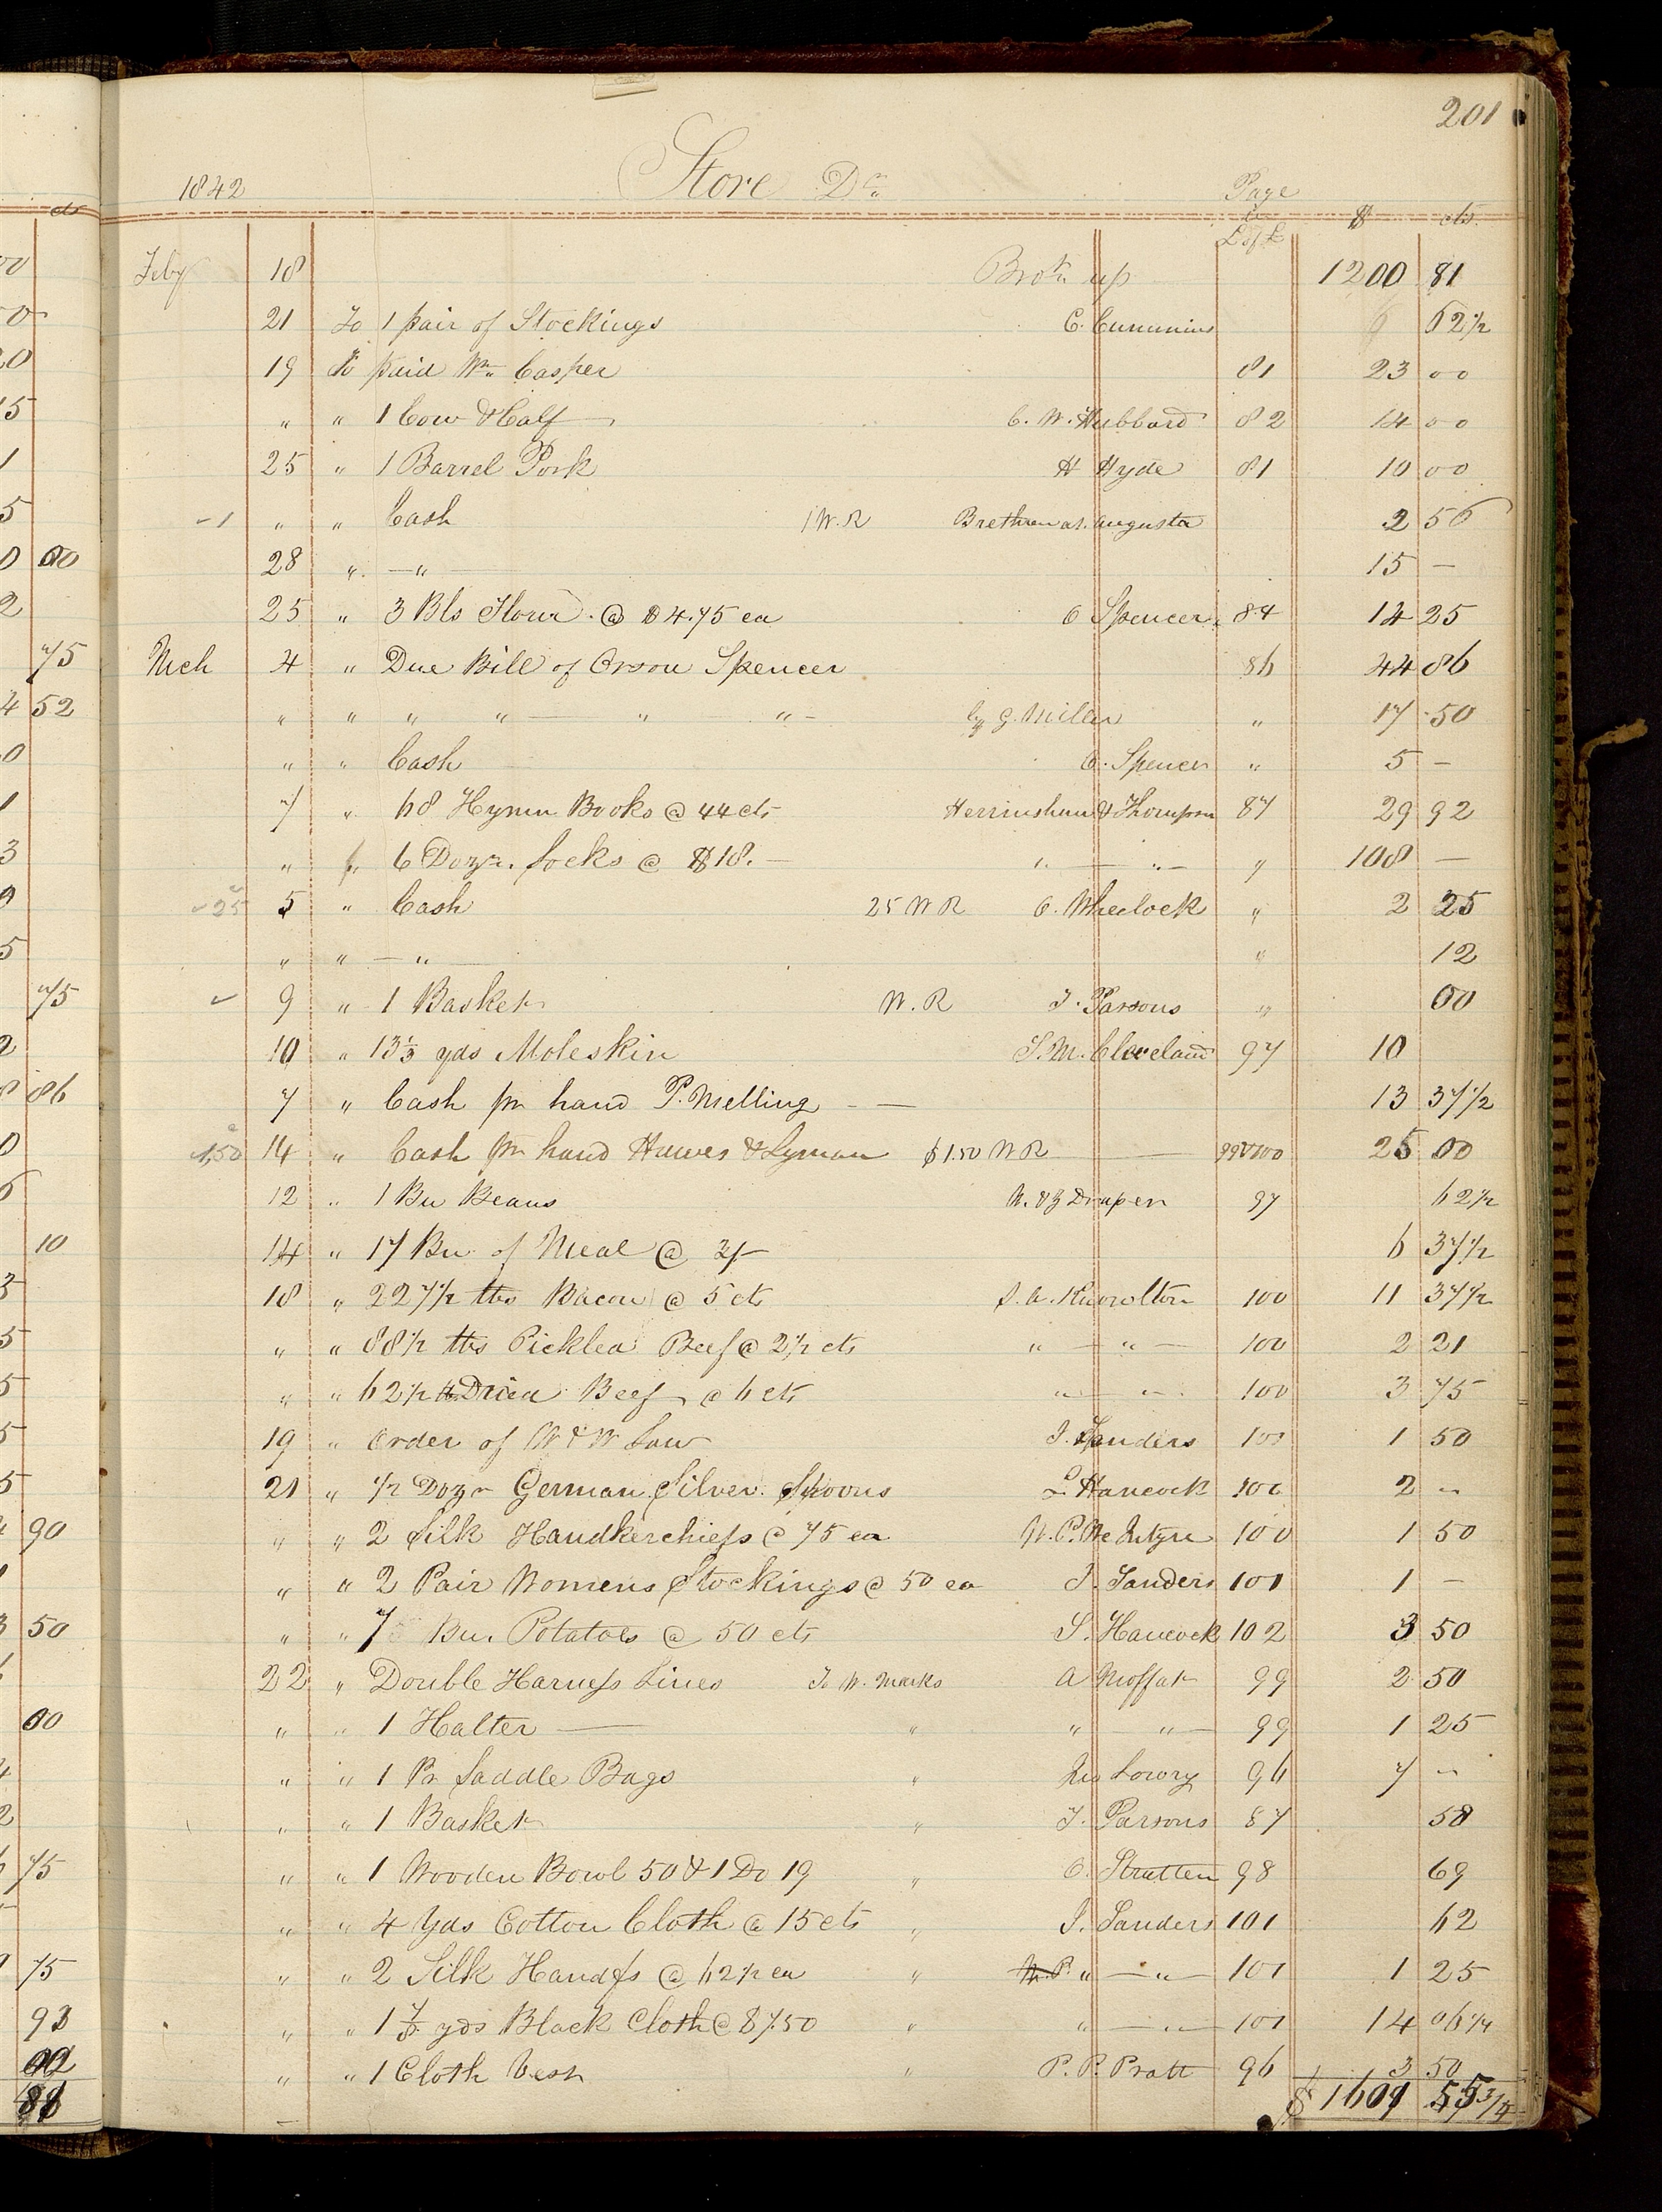 201
1842 Store Dr. Page
L of L $ cts.
Feby 18 Brot. up 1200 81
21 To 1 pair of Stockings C. Cummins 62 1/2
19 To paid Wm. Casper 81 23 00
" " 1 Cow & Calf C. W. Hubbard 82 14 00
25 " 1 Barrel Pork H Hyde 81 10 00
1 " " Cash 1 W. R Brethren at Augusta 2 56
28 " — " — 15 —
25 " 3 Bls Flour @ $4.75 ea O Spencer 84 14 25
Mch 4 " Due Bill of Orson Spencer 86 44 86
" " " " — " " — by G. Miller " 17 50
" " Cash O. Spencer " 5 —
7 " 68 Hymn Books @ 44 cts Herrinshaw & Thompson 87 29 92
" " 6 Dozn. Socks @ $18. — " — " — " 108 —
25 5 " Cash 25 W R C. Wheelock " 2 25
" " — " — " 12
✓ 9 " 1 Basket W. R T. Parsons " 00
10 " 13 1/3 yds Moleskin S. M. Cleveland 97 10
7 " Cash pr hand P. Melling — — 13 37 1/2
1,50 14 " Cash pr hand Hawes & Lyman $1.50 W R — 99 & 100 25 00
12 " 1 Bu Beans W. & Z Draper 97 62 1/2
14 " 17 Bu. of Meal @ 3/- 6 37 1/2
18 " 227 1/2 lbs Bacon @ 5 cts S. A. Knowlton 100 11 37 1/2
" " 88 1/2 lbs Pickled Beef @ 2 1/2 cts " — " — 100 2 21
" " 62 1/2 lb Dried Beef @ 6 cts " — " 100 3 75
19 " Order of W & W Law J. Sanders 100 1 50
21 " 1/2 Dozn German Silver Spoons L Hancock 100 2 —
" " 2 Silk Handkerchiefs @ 75 ea W. P. McIntyre 100 1 50
" " 2 Pair Womens Stockings @ 50 ea J. Sanders 101 1 —
" " 7 Bu. Potatoes @ 50 cts S. Hancock 102 3 50
22 " Double Harness Lines To W. Marks A Moffat 99 2 50
" " 1 Halter — " " — " — 99 1 25
" " 1 Pr Saddle Bags " Jno Lowry 96 7 —
" " 1 Basket " T. Parsons 87 58
" " 1 Wooden Bowl 50 & 1 Do 19 " O. Stratten 98 69
" " 4 Yds Cotton Cloth @ 15 cts " J. Sanders 101 62
" " 2 Silk Handfs @ 62 1/2 ea " W. P. " — " — 101 1 25
" " 1 7/8 yds Black Cloth @ $7.50 " " — " — 101 14 06 1/4
" " 1 Cloth Vest " P. P. Pratt 96 3 50
$ 1609 55 3/4